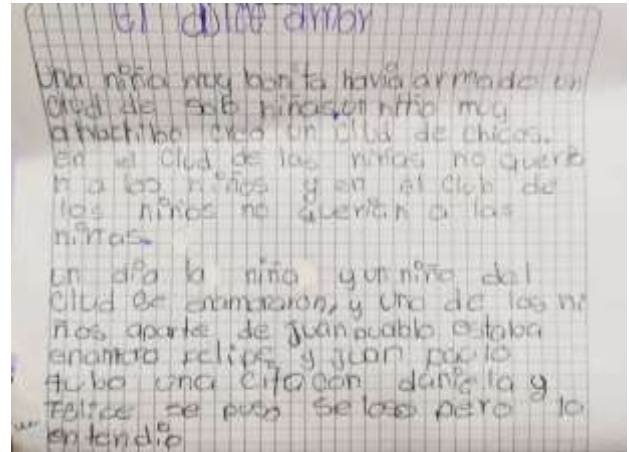 El dulce amor
Una niña muy bonita havia armado un
clud de solo niñas, un niño muy
atractibo creo un clud de chicos.
en el clud de las niñas no queria
n a los niños y en el club de
los niños no querian a las
niñas.
un dia la niña y un niño del
clud se enamoraron, y uno de los ni
ños aparte de juan puablo estaba
enamoro felipe y juan pablo
tubo una cita con daniela y
Felipe se puso seloso pero lo
entendio